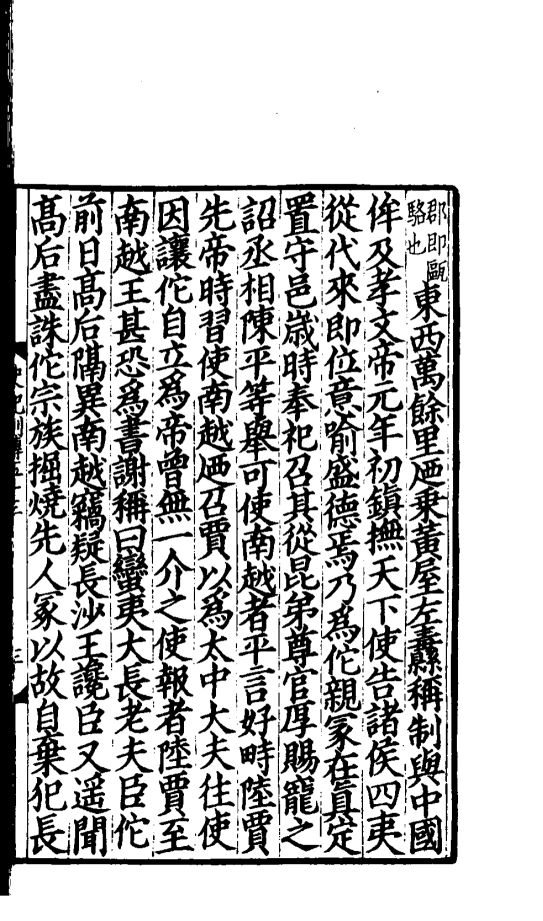 郡即甌駱也東西萬餘里廼乗黃屋左纛稱制與中國
侔及孝文帝元年初鎮撫天下使告諸侯四夷
從代來即位意喻盛德焉乃爲佗親冢在眞定
置守邑歲時奉祀召其從昆弟尊官厚賜寵之
詔丞相陳平等舉可使南越者平言好畤陸賈
先帝時習使南越廼召賈以爲太中大夫往使
因讓佗自立爲帝曾無一介之使報者陸賈至
南越王甚恐爲書謝稱曰蠻夷大長老夫臣佗
前日髙后隔異南越竊疑長沙王讒臣又遥聞
髙后盡誅佗宗族掘燒先人冢以故自棄犯長